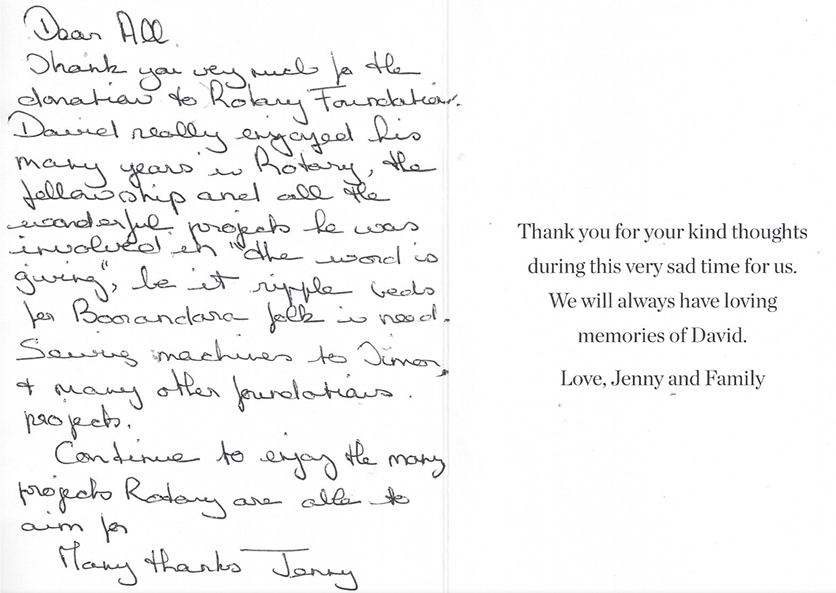 Dear All.
Thank you very much for the
donation to Rotary Foundation.
David really enjoyed his
many years in Rotary, the
fellowship and all the
wonderful projects he was
involved in "the word is
giving", be it ripple beds
for Boorandara folk in need.
Sewing machines to Timor,
+ many other foundations.
projects.
Continue to enjoy the many
projects Rotary are able to
aim for
Many thanks Jenny
Thank you for your kind thoughts
during this very sad time for us.
We will always have loving
memories of David.
Love, Jenny and Family